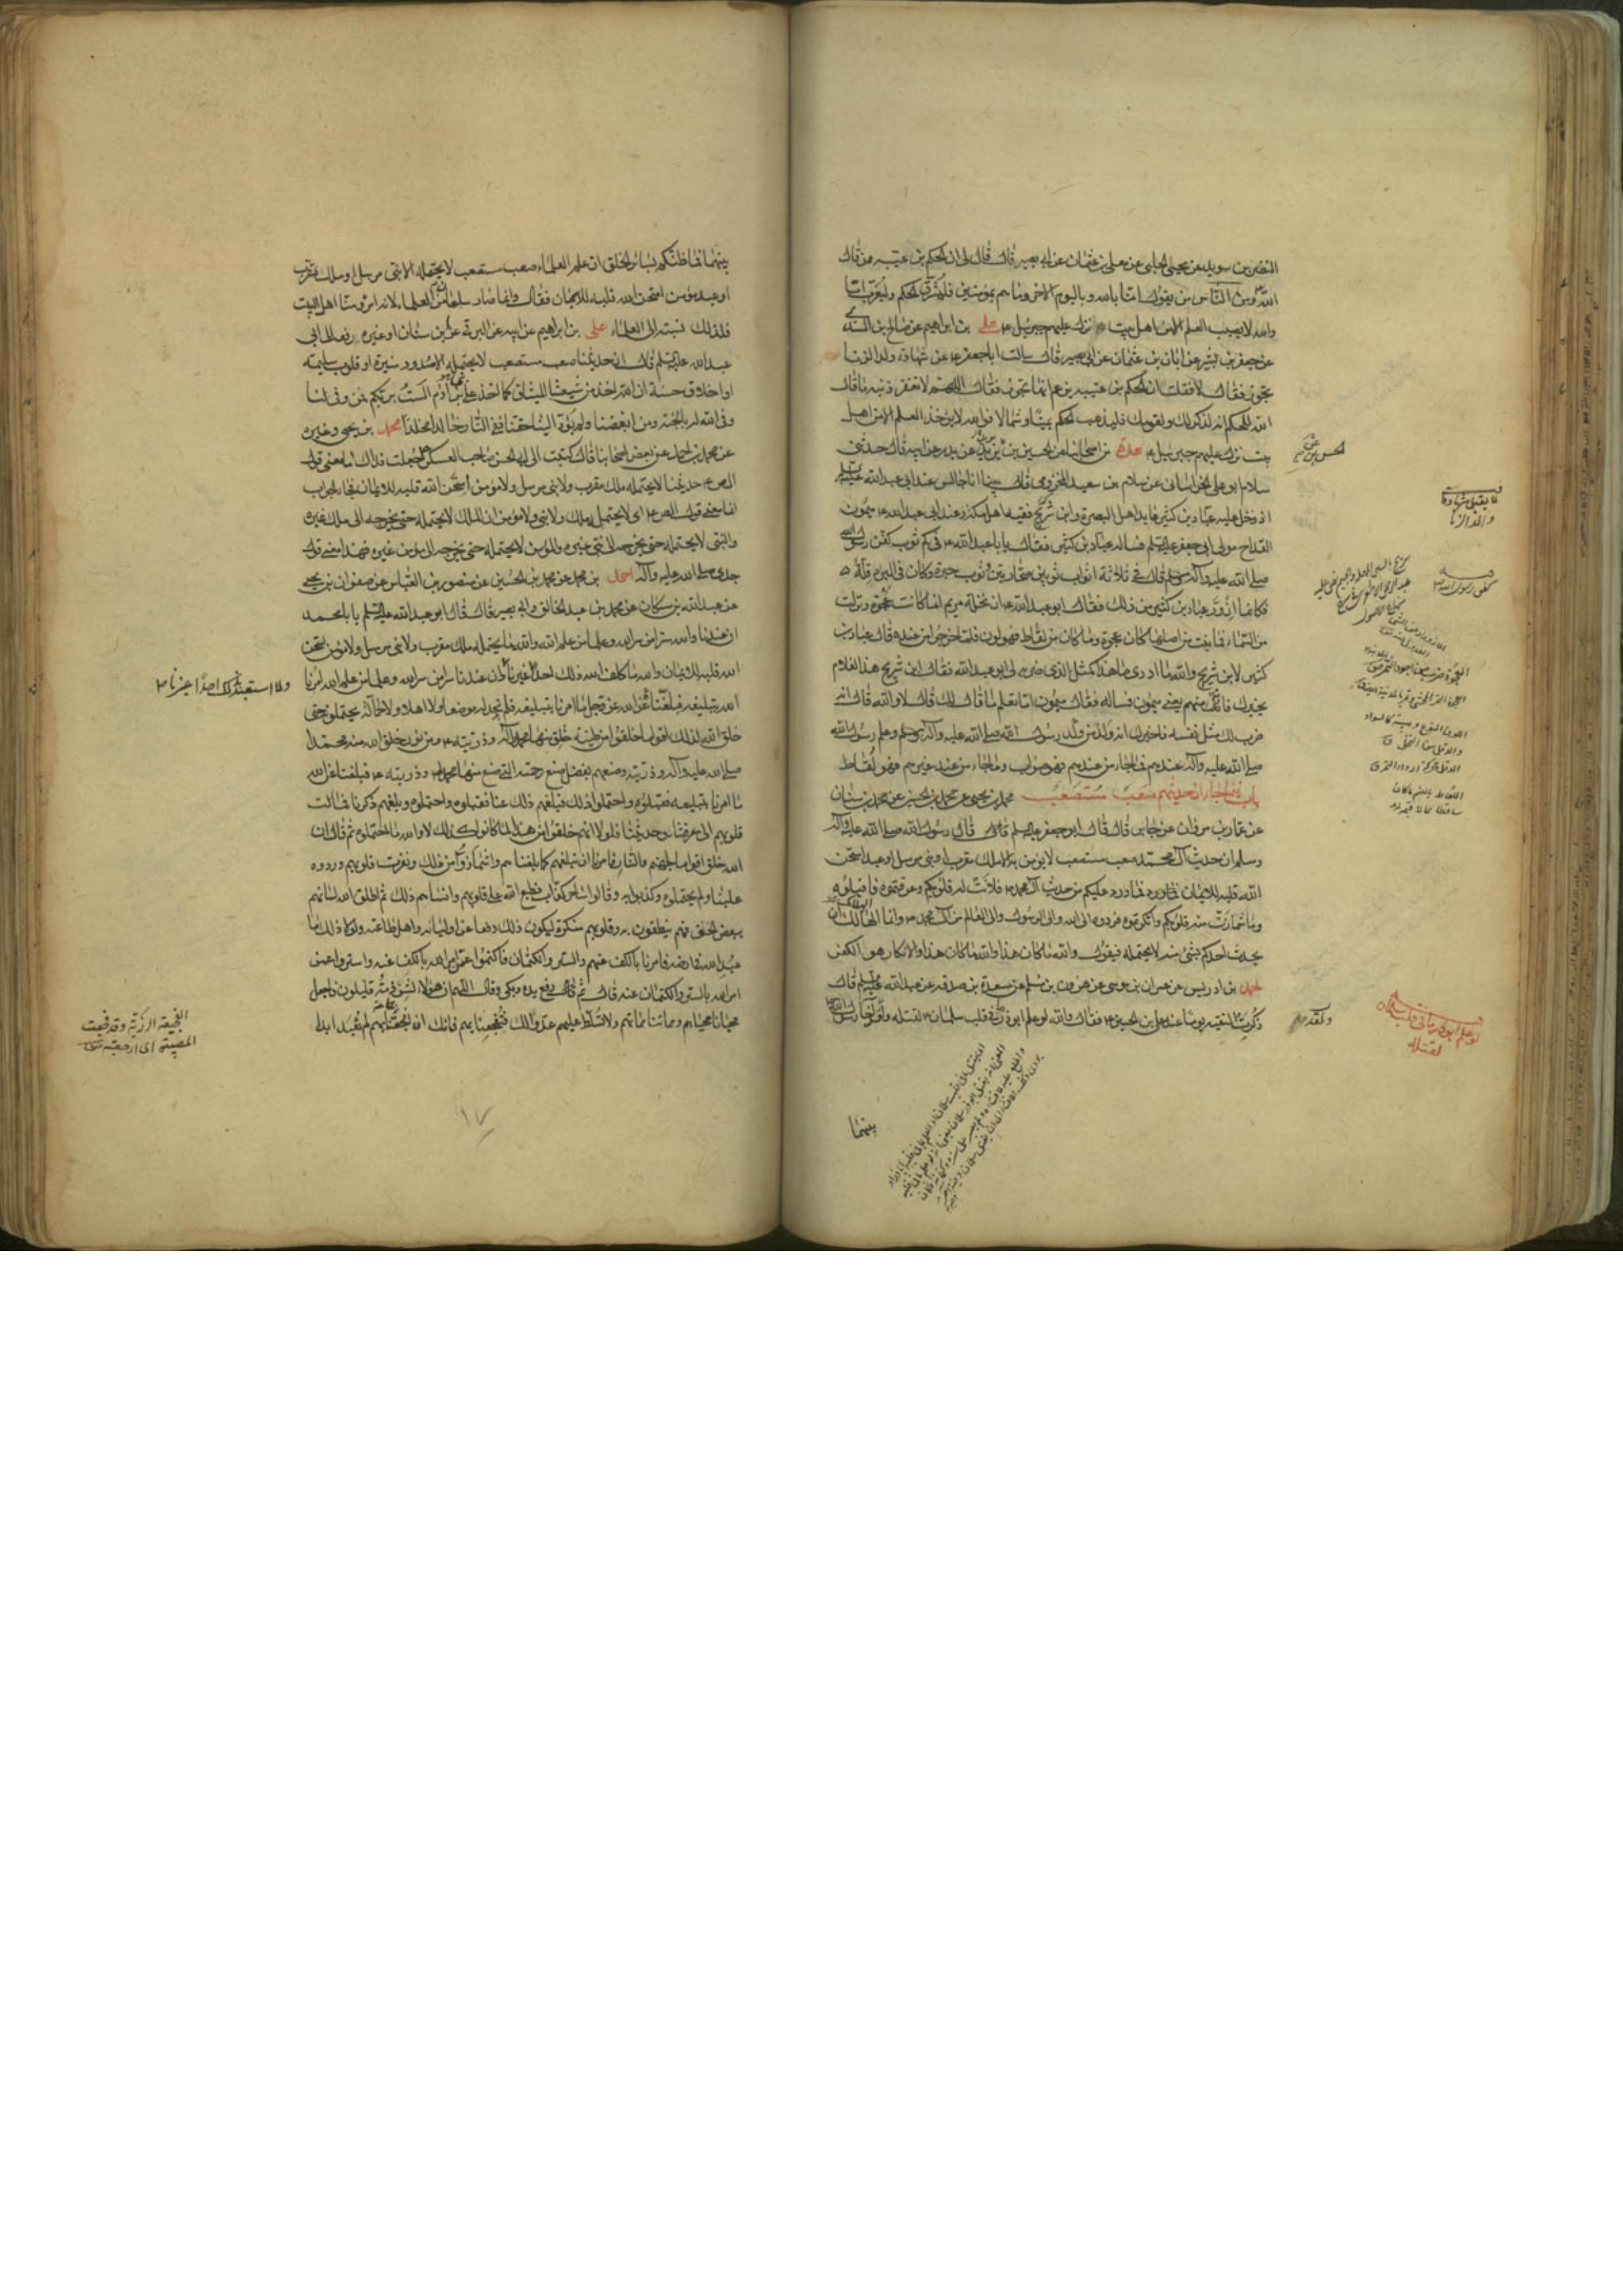 النضر بن سويد عن يحيى الحلبي عن معلى بن عثمان عن ابي بصير قال قال لي ان الحكم بن عتيبه ممن قال
الله ومن الناس من يقول امنا بالله وباليوم الاخر وما هم بمؤمنين فليشرق الحكم وليغرب اما
والله لا يصيب العلم الا من اهل بيت نزل عليهم جبرئيل ع علي بن ابراهيم عن صالح بن السندي
عن جعفر بن بشير عن ابان بن عثمان عن ابي بصير قال سالت ابا جعفر ع عن شهادة ولد الزنا
تجوز فقال لا فقلت ان الحكم بن عتيبه يزعم انها تجوز فقال اللهم لا تغفر ذنبه ما قال
الله للحكم انه لذكر لك ولقومك فليذهب الحكم يمينا وشمالا فوالله لا يؤخذ العلم الا من اهل
بيت نزل عليهم جبرئيل ع عدة من اصحابنا عن الحسين بن الحسن بن يزيد عن بدر عن ابيه قال حدثني
سلام ابو علي الخراساني عن سلام بن سعيد المخزومي قال بينا انا جالس عند ابي عبد الله عليه السلم
اذ دخل عليه عباد بن كثير عابد اهل البصرة وابن شريح فقيه اهل مكة وعند ابي عبد الله ع ميمون
القداح مولى ابي جعفر عليه السلم فساله عباد بن كثير فقال يا با عبد الله ع في كم ثوب كفن رسول الله
صلى الله عليه وآله وسلم قال في ثلاثة اثواب ثوبين صحاريين وثوب حبرة وكان في البرد قلة
فكانما ازور عباد بن كثير من ذلك فقال ابو عبد الله ع ان نخلة مريم انما كانت عجوة ونزلت
من السماء فما نبت من اصلها كان عجوة وما كان من لقاط فهو لون فلما خرجوا من عنده قال عباد بن
كثير لابن شريح والله ما ادري ما هذا المثل الذي ضربه لي ابو عبد الله فقال ابن شريح هذا الغلام
يخبرك فانه منهم يعني ميمون فساله فقال ميمون اما تعلم ما قال لك قال لا والله قال انه
ضرب لك مثل نفسه فاخبرك انه ولد من ولد رسول الله صلى الله عليه وآله وسلم وعلم رسول الله
صلى الله عليه وآله عندهم فما جاء من عندهم فهو صواب وما جاء من عند غيرهم فهو لقاط
باب فيما جاء ان حديثهم صعب مستصعب محمد بن يحيى عن محمد بن الحسين عن محمد بن سنان
عن عمار بن مروان عن جابر قال قال ابو جعفر عليه السلم قال رسول الله صلى الله عليه وآله
وسلم ان حديث آل محمد صعب مستصعب لا يؤمن به الا ملك مقرب او نبي مرسل او عبد امتحن
الله قلبه للايمان فما ورد عليكم من حديث آل محمد ع فلانت له قلوبكم وعرفتموه فاقبلوه
وما اشمازت منه قلوبكم وانكرتموه فردوه الى الله والى الرسول والى العالم من آل محمد ع وانما الهالك ان
يحدث احدكم بشئ منه لا يحتمله فيقول والله ما كان هذا والله ما كان هذا والانكار هو الكفر
احمد بن ادريس عن عمران بن موسى عن هرون بن مسلم عن مسعدة بن صدقه عن ابي عبد الله عليه السلم قال
ذكرت التقيه يوما عند علي بن الحسين ع فقال والله لو علم ابوذر ما في قلب سلمان لقتله ولقد آخا رسول الله
بينهما
لا يقبل شهادة
ولد الزنا
كفن رسول الله ص
لو علم ابوذر ما في قلب سلمان
لقتله
بينهما فما ظنكم بسائر الخلق ان علم العلماء صعب مستصعب لا يحتمله الا نبي مرسل او ملك مقرب
او عبد مؤمن امتحن الله قلبه للايمان فقال وانما صار سلمان من العلماء لانه امرؤ منا اهل البيت
فلذلك نسبته الى العلماء علي بن ابراهيم عن ابيه عن البرقي عن ابن سنان او غيره رفعه الى ابي
عبد الله عليه السلم قال ان حديثنا صعب مستصعب لا يحتمله الا صدور منيرة او قلوب سليمه
او اخلاق حسنة ان الله اخذ من شيعتنا الميثاق كما اخذ على بني آدم الست بربكم فمن وفى لنا
وفى الله له بالجنة ومن ابغضنا ولم يؤد الينا حقنا ففي النار خالدا مخلدا محمد بن يحيى وغيره
عن محمد بن احمد عن بعض اصحابنا قال كتبت الى ابي الحسن صاحب العسكر ع جعلت فداك ما معنى قول
الص ع حديثنا لا يحتمله ملك مقرب ولا نبي مرسل ولا مؤمن امتحن الله قلبه للايمان فجاء الجواب
انما معنى قول الص ع اي لا يحتمله ملك ولا نبي ولا مؤمن ان الملك لا يحتمله حتى يخرجه الى ملك غيره
والنبي لا يحتمله حتى يخرجه الى نبي غيره والمؤمن لا يحتمله حتى يخرجه الى مؤمن غيره فهذا معنى قول
جدي صلى الله عليه وآله احمد بن محمد عن محمد بن الحسين عن منصور بن العباس عن صفوان بن يحيى
عن عبد الله بن مسكان عن محمد بن عبد الخالق وابي بصير قال قال ابو عبد الله عليه السلم يا با محمد
ان عندنا والله سرا من سر الله وعلما من علم الله والله ما يحتمله ملك مقرب ولا نبي مرسل ولا مؤمن امتحن
الله قلبه للايمان والله ما كلف الله ذلك احدا غيرنا وان عندنا سرا من سر الله وعلما من علم الله امرنا
ولا استعبد بذلك احدا غيرنا
الله بتبليغه فبلغنا عن الله عز وجل ما امرنا بتبليغه فلم نجد له موضعا ولا اهلا ولا حمالة يحتملونه حتى
خلق الله لذلك اقواما خلقوا من طينة خلق منها محمد وآله وذريته ع ومن نور خلق الله منه محمدا
صلى الله عليه وآله وذريته وصنعهم بفضل صنع رحمته التي صنع منها محمد وذريته ع فبلغنا عن الله
ما امرنا بتبليغه فقبلوه واحتملوا ذلك فبلغهم ذلك عنا فقبلوه واحتملوه وبلغهم ذكرنا فمالت
قلوبهم الى معرفتنا وحديثنا فلولا انهم خلقوا من هذا لما كانوا كذلك لا والله ما احتملوه ثم قال ان
الله خلق اقواما لجهنم والنار فامرنا ان نبلغهم كما بلغناهم واشمازوا من ذلك ونفرت قلوبهم وردوه
علينا ولم يحتملوه وكذبوا به وقالوا ساحر كذاب فطبع الله على قلوبهم وانساهم ذلك ثم اطلق الله لسانهم
ببعض الحق فهم ينطقون به وقلوبهم منكرة ليكون ذلك دفعا عن اوليائه واهل طاعته ولولا ذلك ما
عبد الله في ارضه فامرنا بالكف عنهم والستر والكتمان فاكتموا عمن امر الله بالكف عنه واستروا عمن
امر الله بالستر والكتمان عنه قال ثم رفع يده وبكى وقال اللهم ان هؤلاء لشرذمة قليلون فاجعل
محيانا محياهم ومماتنا مماتهم ولا تسلط عليهم عدوا لك فتفجعنا بهم فانك ان افجعتنا بهم لم تعبد ابدا
١٧